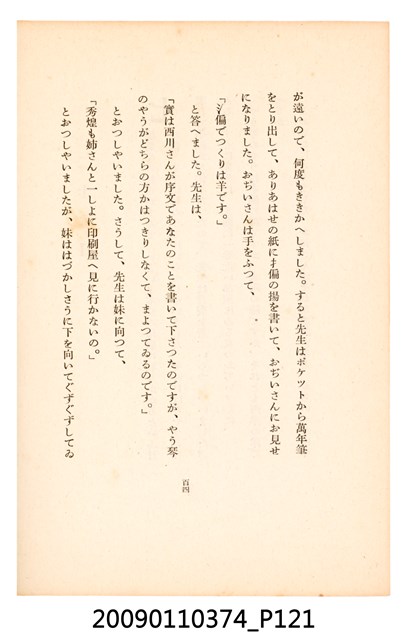 が遠いので、何度もききかへしました。すると先生はポケツトから萬年筆
をとり出して、ありあはせの紙に扌偏の揚を書いて、おぢいさんにお見せ
になりました。おぢいさんは手をふつて、
「氵偏でつくりは羊です。」
と答へました。先生は、
「實は西川さんが序文であなたのことを書いて下さつたのですが、やう琴
のやうがどちらの方かはつきりしなくて、まよつてゐるのです。」
とおつしやいました。さうして、先生は妹に向つて、
「秀煌も姉さんと一しよに印刷屋へ見に行かないの。」
とおつしやいましたが、妹ははづかしさうに下を向いてぐずぐずしてゐ
百四
20090110374_P121